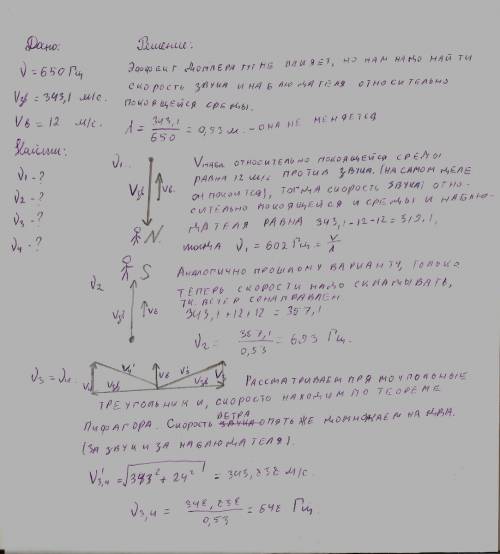 Дано:
Решение:
ν = 650 Гц
Vзв = 343,1 м/с.
Vв = 12 м/с.
Найти:
ν1 - ?
ν2 - ?
ν3 - ?
ν4 - ?
Эффект Доплера тут не влияет, но нам надо найти
скорость звука и наблюдателя относительно
покоящейся среды.
λ = 343,1/650 = 0,53 м. - она не меняется
ν1.
Vзв
Vв.
N.
Vнабл относительно покоящейся среды
равна 12 м/с против звука. (на самом деле
он покоится), тогда скорость звука отно-
сительно покоящейся и среды и наблю-
дателя равна 343,1-12-12 = 319,1,
тогда ν1 = 602 Гц = V/λ
ν2
S
Vзв
Vв
Аналогично прошлому варианту, только
теперь скорости надо складывать,
т.к. ветер сонаправлен
343,1+12+12 = 367,1
ν2 = 367,1/0,53 = 693 Гц.
ν3 = ν4.
Vзв
Vв
Vзв
Рассматриваем прямоугольные
треугольники, скорость находим по теореме
ветра
Пифагора. Скорость звука опять же домножаем на два.
(за звук и за наблюдателя).
V'3,4 = √343² + 24² = 343,838 м/с.
ν3,4 = 343,838/0,53 = 648 Гц